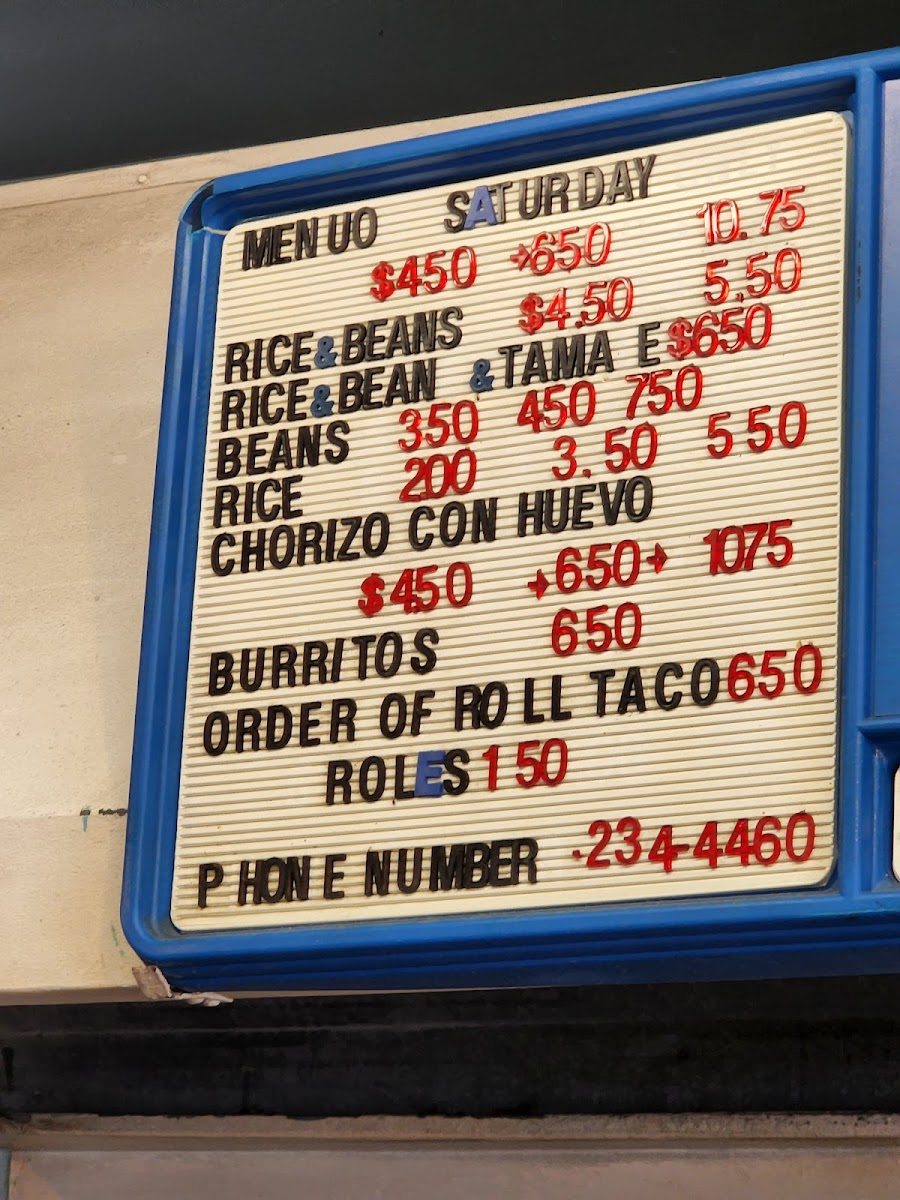 MENUO SATURDAY
$450 →650 10.75
RICE&BEANS $4.50 5.50
RICE&BEAN &TAMA E $650
BEANS 350 450 750
RICE 200 3.50 550
CHORIZO CON HUEVO
$450 →650→ 1075
BURRITOS 650
ORDER OF ROLL TACO 650
ROLES 150
PHONE NUMBER .234-4460